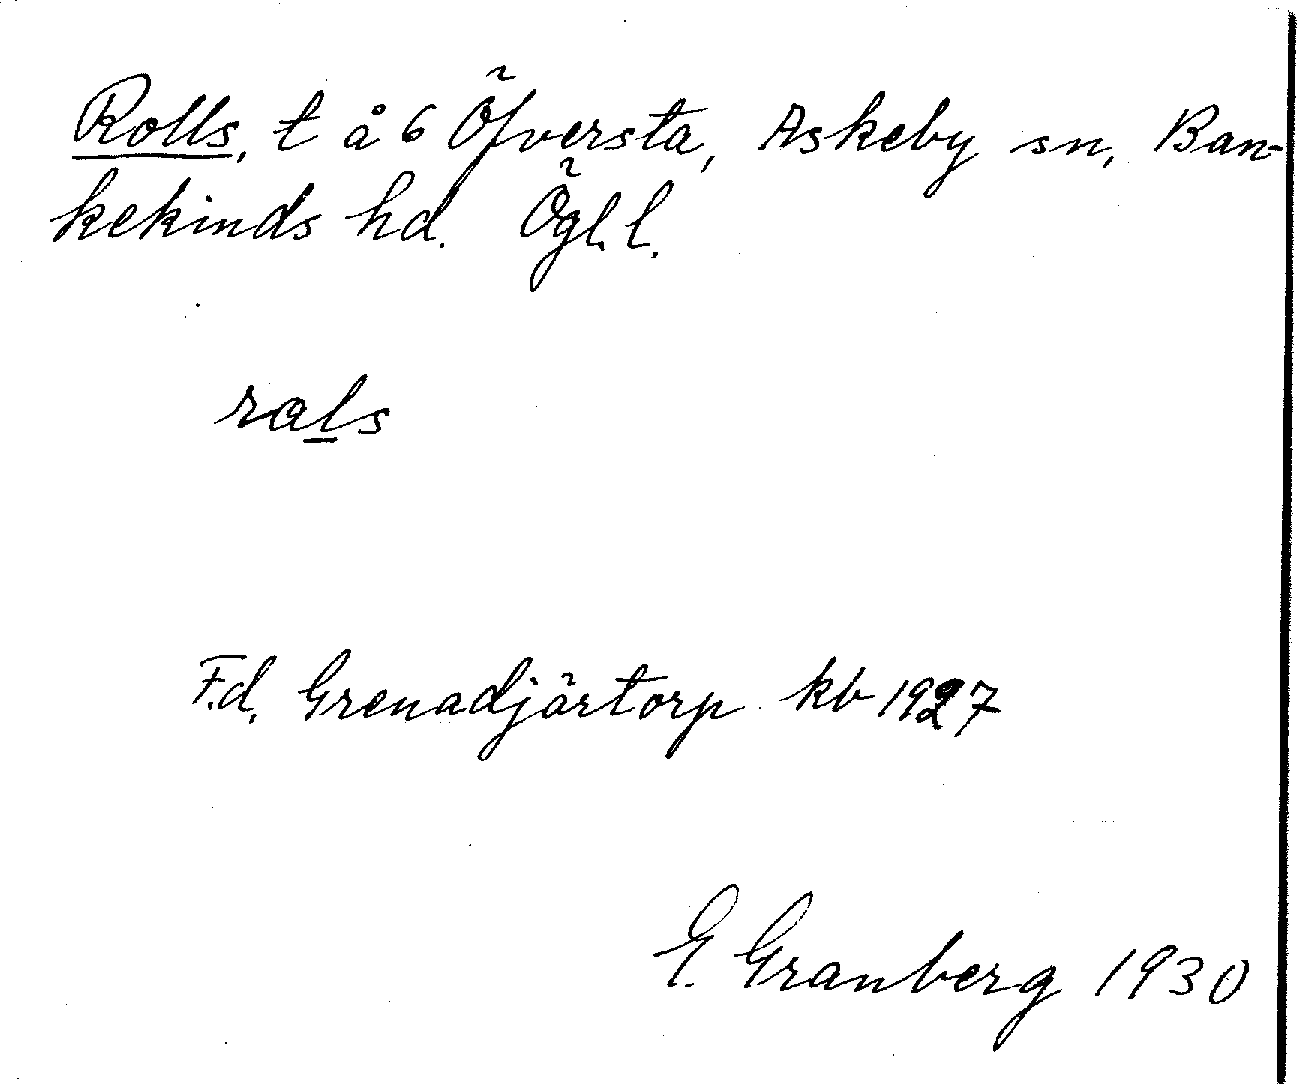 Rolls, t å 6 Öfversta, Askeby sn, Ban-
kekinds hd. Ögl. l.
rals
F.d. Grenadjärtorp kb 1927
E. Granberg 1930